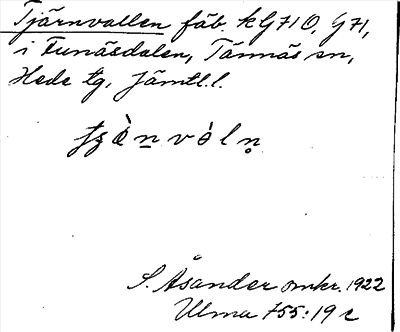 Tjärnvallen fäb. kG71 O, G71,
i Funäsdalen, Tännäs sn,
Hede tg, Jämtl. l.
S. Åsander omkr. 1922
Ulma 755:19 c